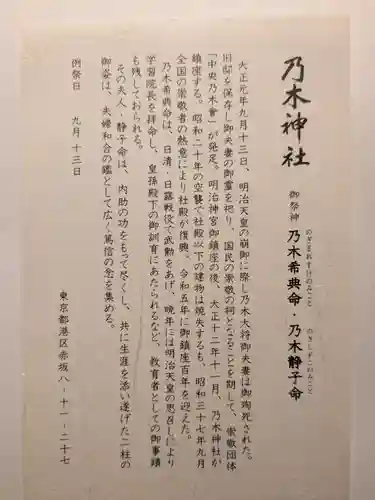 乃木神社
御祭神
乃木希典命・乃木静子命
のぎまれすけのみこと
のぎしずこのみこと
大正元年九月十三日、明治天皇の崩御に際し乃木大将御夫妻は御殉死された。
旧邸を保存し御夫妻の御霊を祀り、国民の崇敬の祠となることを期して、崇敬団体
「中央乃木會」が発足。明治神宮御鎮座の後、大正十二年十一月、乃木神社が
鎮座する。昭和二十年の空襲で社殿以下の建物は焼失するも、昭和三十七年九月
全国の崇敬者の熱意により社殿が復興。令和五年に御鎮座百年を迎えた。
乃木希典命は、日清・日露戦役で武勲をあげ、晩年には明治天皇の思召しにより
学習院長を拝命し、皇孫殿下の御訓育にあたられるなど、教育者としての御事蹟
も残しておられる。
その夫人・静子命は、内助の功をもって尽くし、共に生涯を添い遂げた二柱の
御姿は、夫婦和合の鑑として広く篤信の念を集める。
例祭日 九月十三日
東京都港区赤坂八-十一-二十七